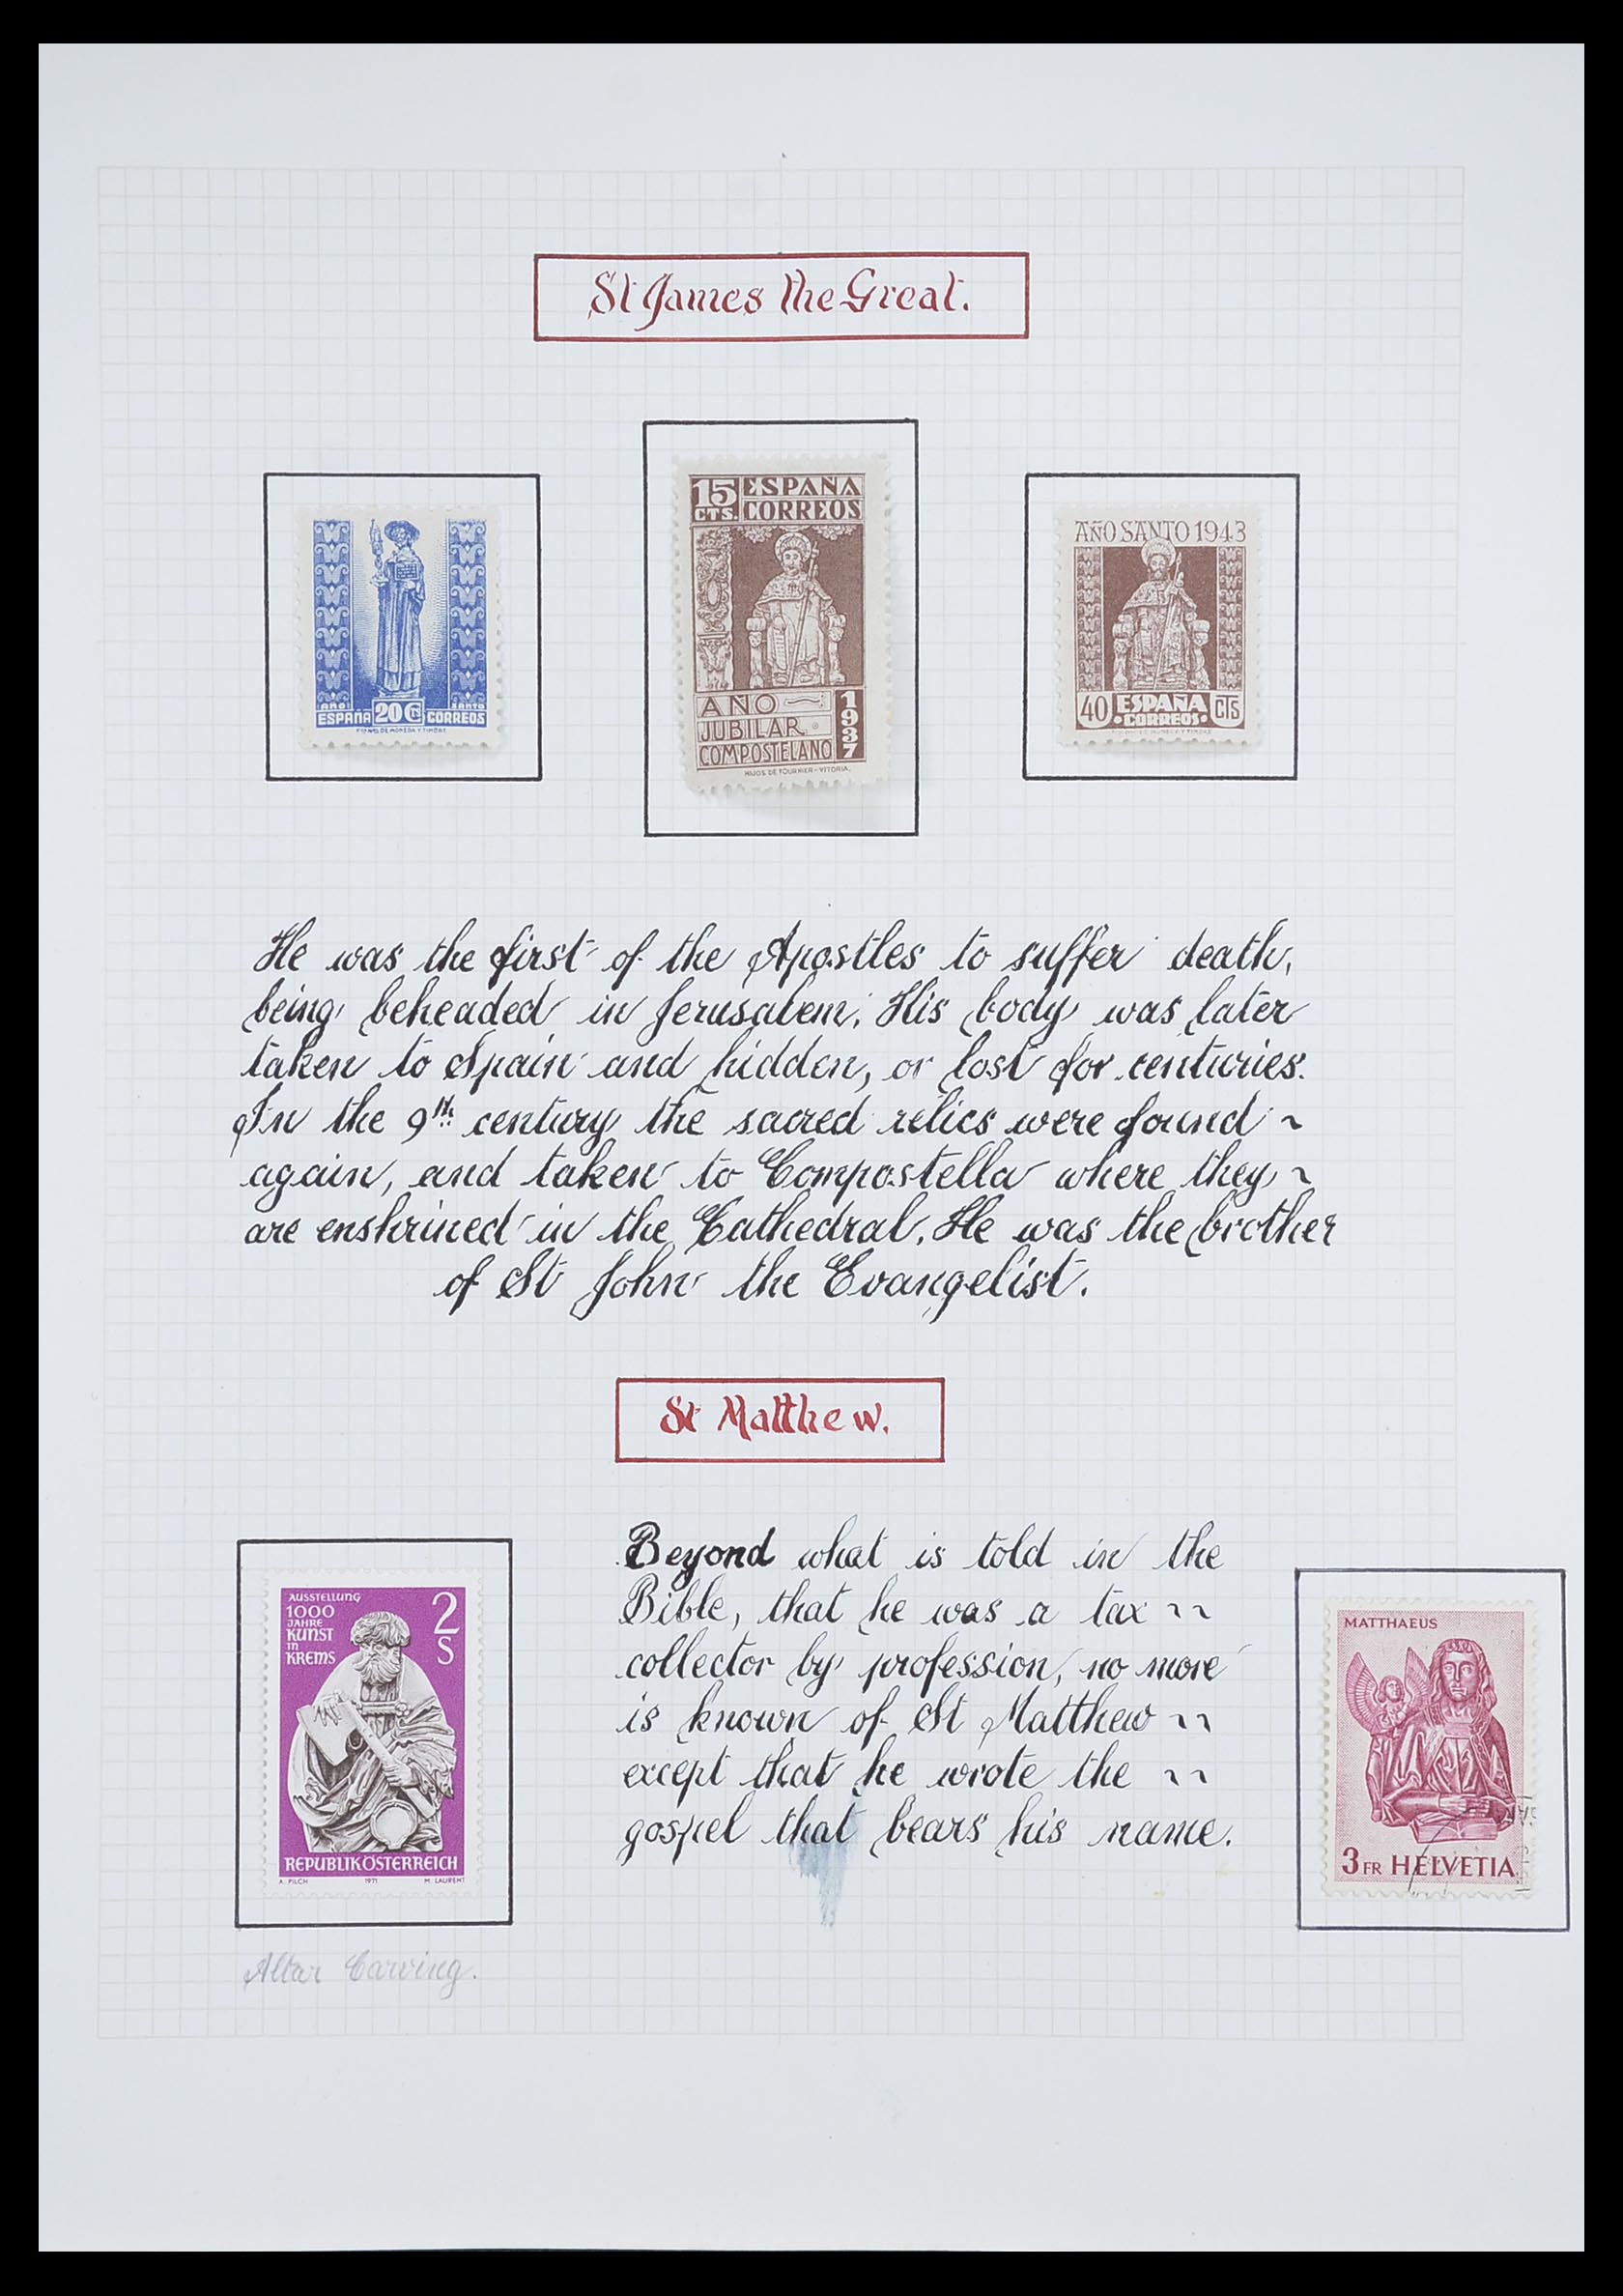 St James the Great.
AÑO SANTO
ESPAÑA 20 C CORREOS
15 CTS. ESPAÑA CORREOS
AÑO
JUBILAR
COMPOSTELANO
1937
HIJOS DE FOURNIER-VITORIA.
AÑO SANTO 1943
40 ESPAÑA CTS
CORREOS
He was the first of the Apostles to suffer death,
being beheaded in Jerusalem. His body was later
taken to Spain and hidden, or lost for centuries.
In the 9th century the sacred relics were found ~
again, and taken to Compostella where they ~
are enshrined in the Cathedral. He was the brother
of St John the Evangelist.
St Matthew.
AUSSTELLUNG
1000
JAHRE
KUNST
IN
KREMS
2
S
REPUBLIK ÖSTERREICH
A. PILCH 1971 M. LAURENT
Altar Carving.
Beyond what is told in the
Bible, that he was a tax ~~
collector by profession, no more
is known of St Matthew ~~
except that he wrote the ~~
gospel that bears his name.
MATTHAEUS
3 FR HELVETIA